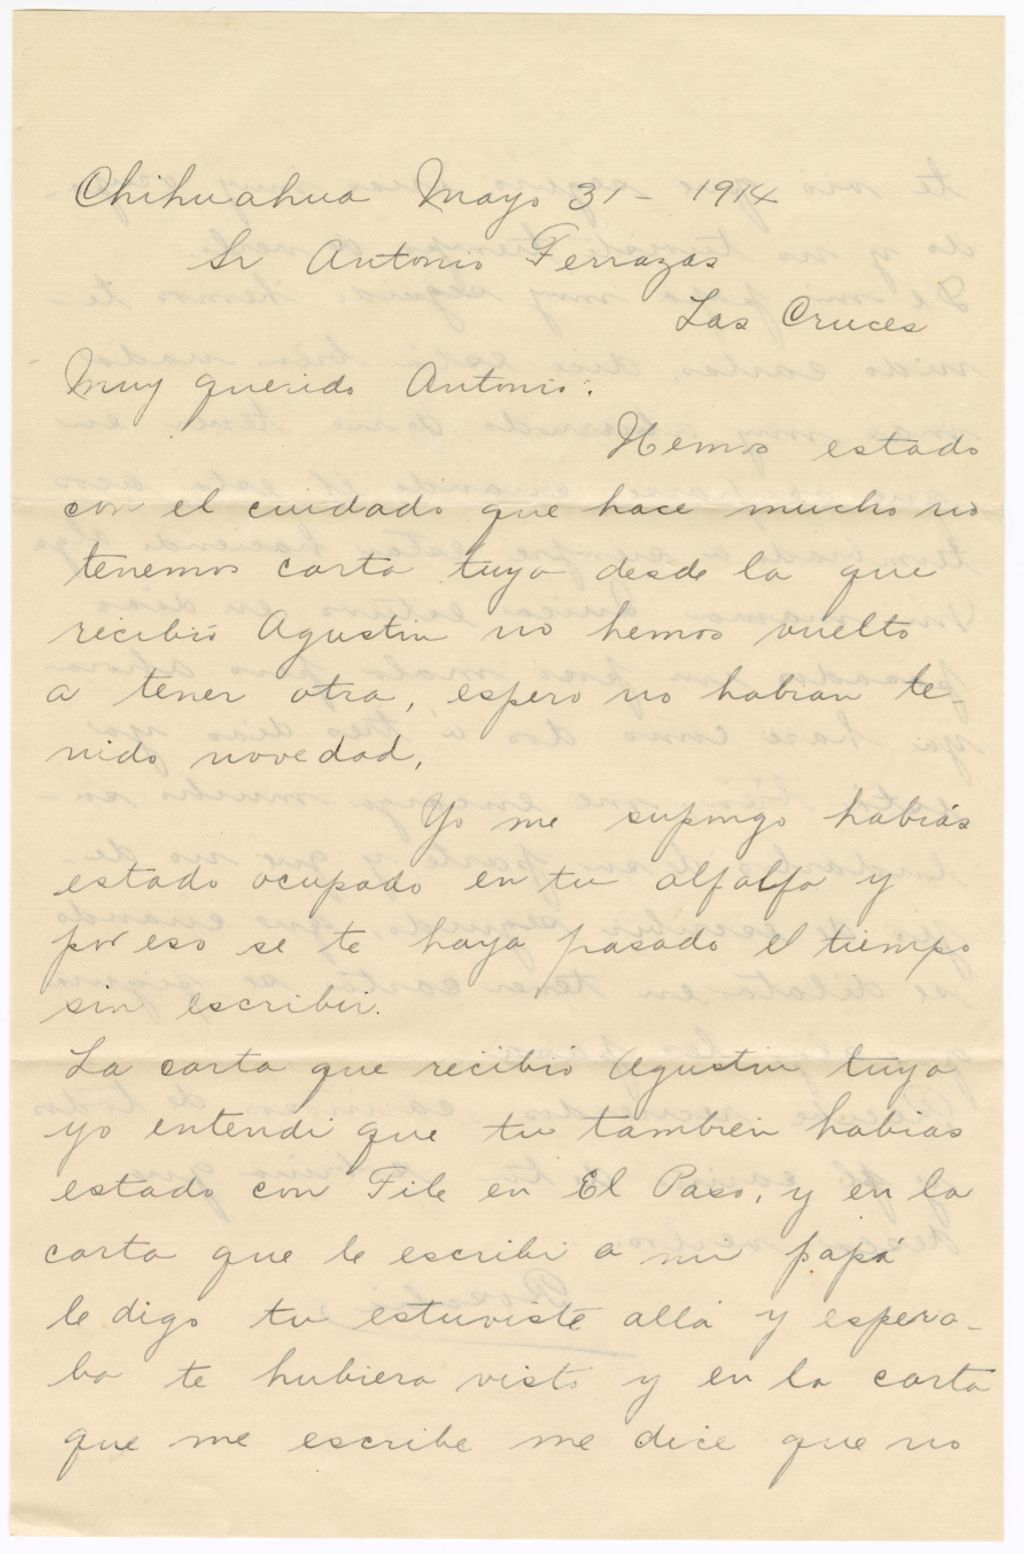 Chihuahua Mayo 31 - 1914
Sr Antonio Terrazas
Las Cruces
Muy querido Antonio:
Hemos estado
con el cuidado que hace mucho no
tenemos carta tuya desde la que
recibió Agustin no hemos vuelto
a tener otra, espero no habian te-
nido novedad,
Yo me supongo habiás
estado ocupado en tu alfalfa y
por eso se te haya pasado el tiempo
sin escribir.
La carta que recibió Agustin tuya
yo entendi que tu tambien habias
estado con File en El Paso, y en la
carta que le escribi a mi papá
le digo tu estuviste allá y espera-
ba te hubiera visto y en la carta
que me escribe me dice que no